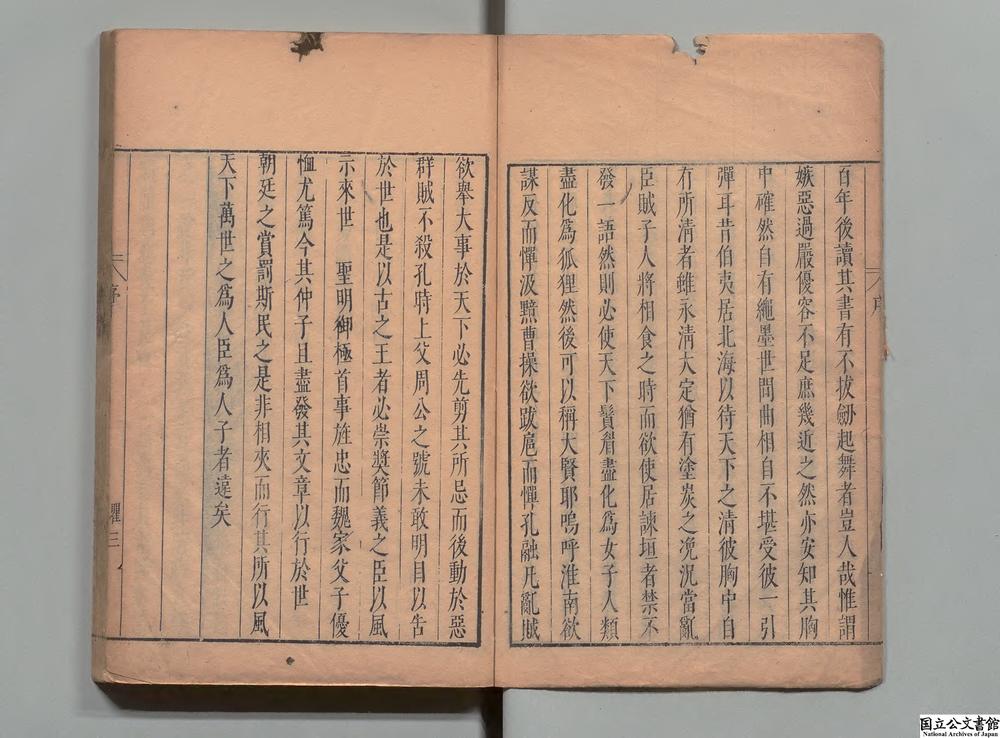 百年後讀其書有不拔劒起舞者豈人哉惟謂
嫉惡過嚴優容不足庶幾近之然亦安知其胸
中確然自有繩墨世間曲相自不堪受彼一引
彈耳昔伯夷居北海以待天下之清彼胸中自
有所清者雖永清大定猶有塗炭之况況當亂
臣賊子人將相食之時而欲使居諫垣者禁不
發一語然則必使天下鬚眉盡化爲女子人類
盡化爲狐狸然後可以稱大賢耶嗚呼淮南欲
謀反而憚汲黯曹操欲跋扈而憚孔融凡亂賊
欲舉大事於天下必先剪其所忌而後動於惡
群賊不殺孔時上父周公之號未敢明目以告
於世也是以古之王者必崇奬節義之臣以風
示來世　聖明御極首事旌忠而魏家父子優
恤尤篤今其仲子且盡發其文章以行於世
朝廷之賞罰斯民之是非相夾而行其所以風
天下萬世之爲人臣爲人子者遠矣
序
三
国立公文書館
National Archives of Japan